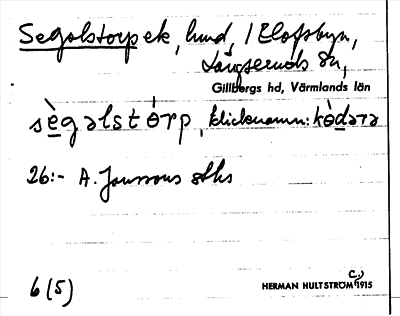 Segolstorpek, hmd, / Elofsbyn,
Långseruds sn,
Gillbergs hd, Värmlands län
sègəlstórp, klicknamn: kòdərə
26:- A. Jonssons
6 (5)
HERMAN HULTSTRÖM C:) 1915